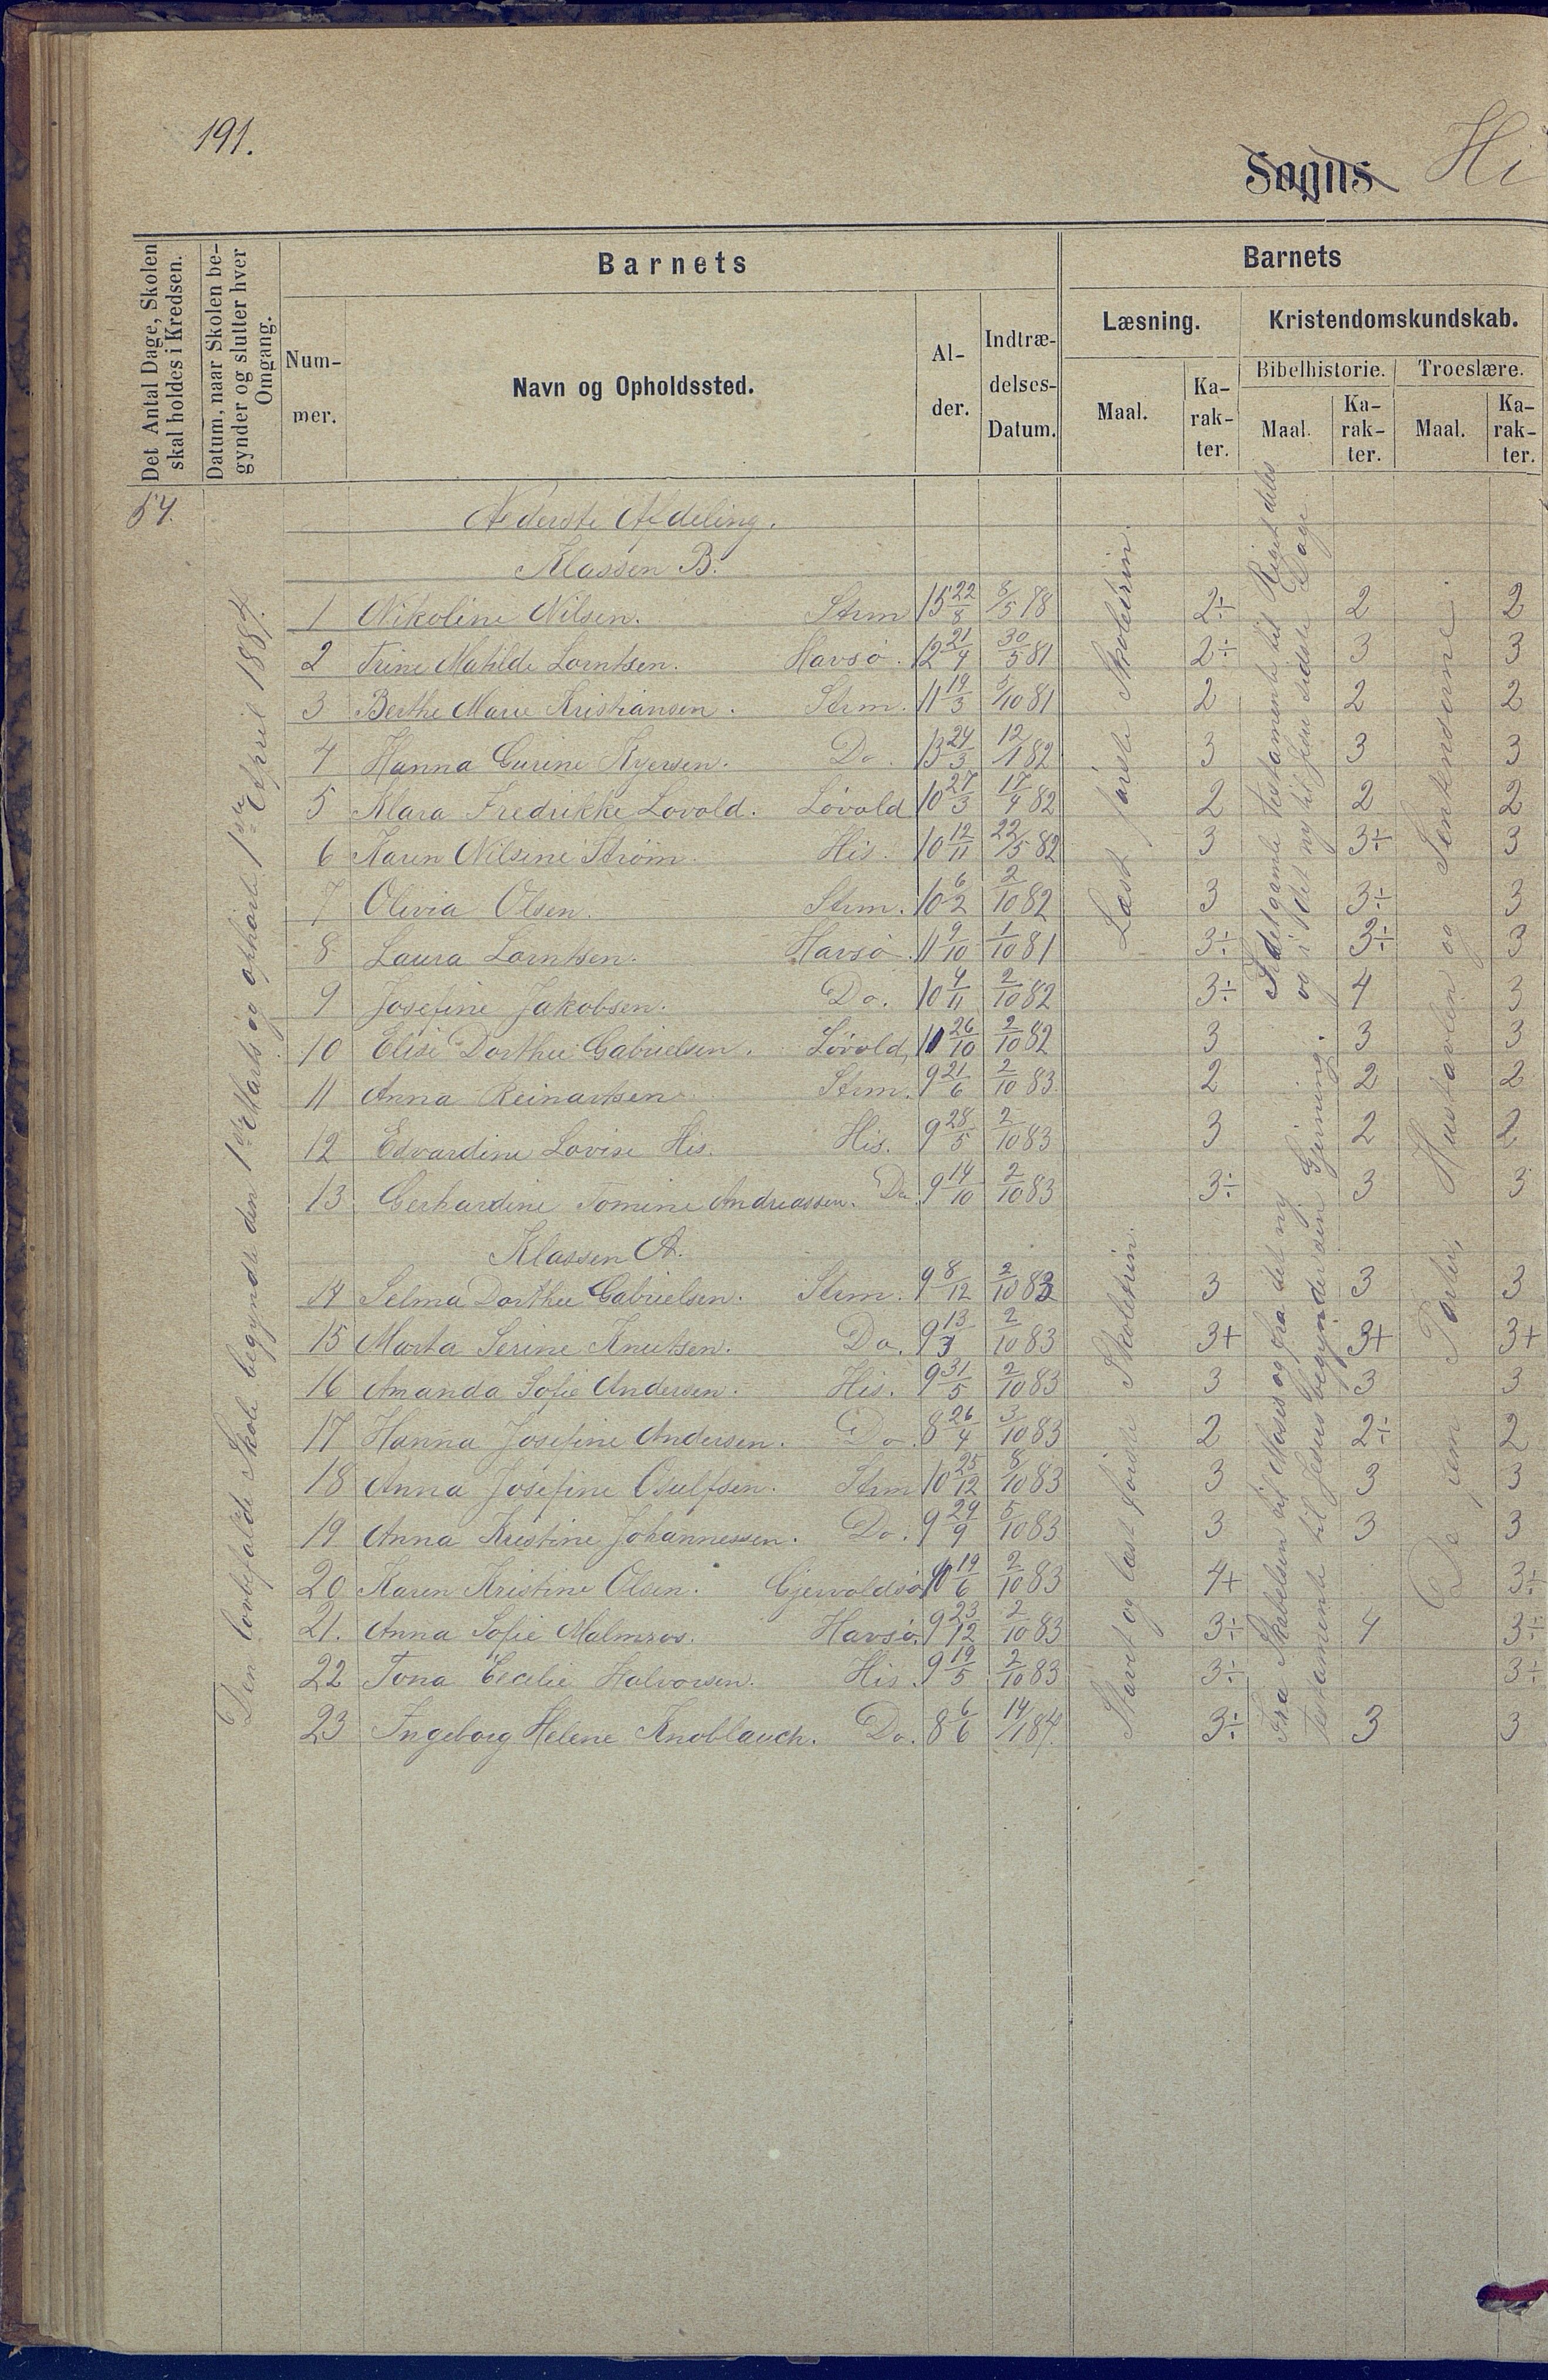 191.
Sogns Hi
Det Antal Dage, Skolen skal holdes i Kredsen.
Datum, naar Skolen begynder og slutter hver Omgang.
Barnets
Nummer.
Navn og Opholdssted.
Alder.
Indtrædelses-Datum.
Barnets
Læsning.
Kristendomskundskab.
Maal.
Karakter.
Bibelhistorie.
Troeslære.
Maal.
Karakter.
Maal.
Karakter.
54.
Den lovbefalede Skole begyndte den 1ste Marts og ophörte 1ste April 1884.
Nederste Afdeling.
Klassen B.
1 Nikoline Nilsen. Strm 15 22/8 8/5 78 2÷ 2 2
2 Trine Matilde Lorntsen. Havsö. 12 21/4 30/5 81 2÷ 3 3
3 Berthe Marie Kristiansen. Strm. 11 19/3 5/10 81 2 2 2
4 Hanna Gurine Ayersen. Do. 13 24/3 12/1 82 3 3 3
5 Klara Fredrikke Lövold. Lövold 10 27/3 17/4 82 2 2 2
6 Karen Nilsine Ström. His. 10 12/11 22/5 82 3 3÷ 3
7 Olivia Olsen. Strm. 10 6/2 2/10 82 3 3÷ 3
8 Laura Lorntsen. Havsö. 11 9/10 1/10 81 3÷ 3÷ 3
9 Josefine Jakobsen. Do. 10 4/11 2/10 82 3÷ 4 3
10 Elise Dorthee Gabrielsen. Lövold, 10 26/10 2/10 82 3 3 3
11 Anna Reinartsen. Strm. 9 21/6 2/10 83 2 2 2
12 Edvardine Lovise His. His. 9 28/5 2/10 83 3 2 2
13 Gerhardine Tomine Andreassen. Do. 9 14/10 2/10 83 3÷ 3 3
Læst förste Skoletrin.
I det gamle Testamente til Riget deles
og i det ny til Jesu sidste Dage
Parten, Hustavlen og Sentenserne.
Klassen A.
14 Selma Dorthee Gabrielsen. Strm. 9 8/12 2/10 83 3 3 3
15 Marta Serine Knutsen. Do. 9 13/3 2/10 83 3+ 3+ 3+
16 Amanda Sofie Andersen. His. 9 31/5 2/10 83 3 3 3
17 Hanna Josefine Andersen. Do. 8 26/4 3/10 83 2 2÷ 2
18 Anna Josefine Osulfsen. Strm 10 25/12 8/10 83 3 3 3
19 Anna Kristine Johannessen. Do. 9 29/9 5/10 83 3 3 3
20 Karen Kristine Olsen. Gjervoldsö 10 19/6 2/10 83 4+ 3÷
21. Anna Sofie Malmros. Havsö. 9 23/12 2/10 83 3÷ 4 3÷
22 Tona Cecelie Halvorsen. His. 9 19/5 2/10 83 3÷ 3÷
23 Ingeborg Helene Knoblauch. Do. 8 6/6 14/1 84. 3÷ 3 3
Stavet og læst förste Skoletrin.
Fra Skabelsen til Moses og fra det ny
Testamente til Jesus begynder sin Gjerning.
De fem